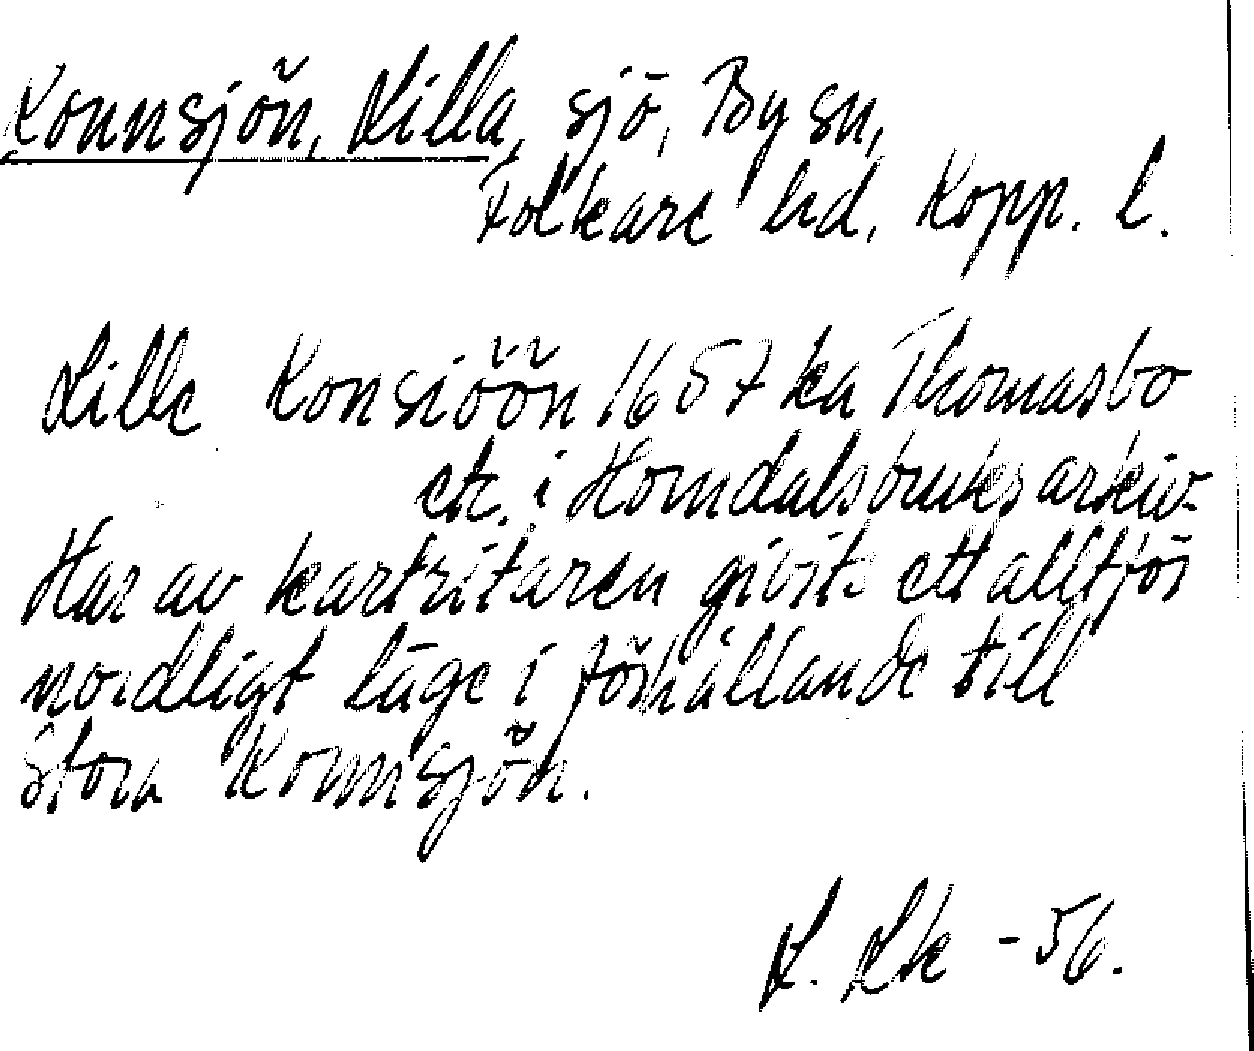 Konnsjön, Lilla, sjö, By sn,
Folkare hd, Kopp. l.
Lille Konsiöön 1657 ka Thomasbo
etc. i Horndalsbruks arkiv.
Har av kartritaren givits ett alltför
nordligt läge i förhållande till
Stora Konnsjön.
L. Lk - 56.